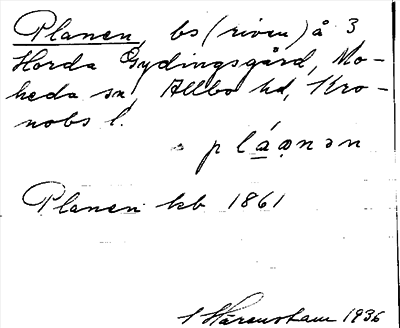 Planen, bs (riven) å 3
Horda Gydingsgård, Mo-
heda sn, Allbo hd, Kro-
nobs l.
pláənən
Planen kb 1861
1936